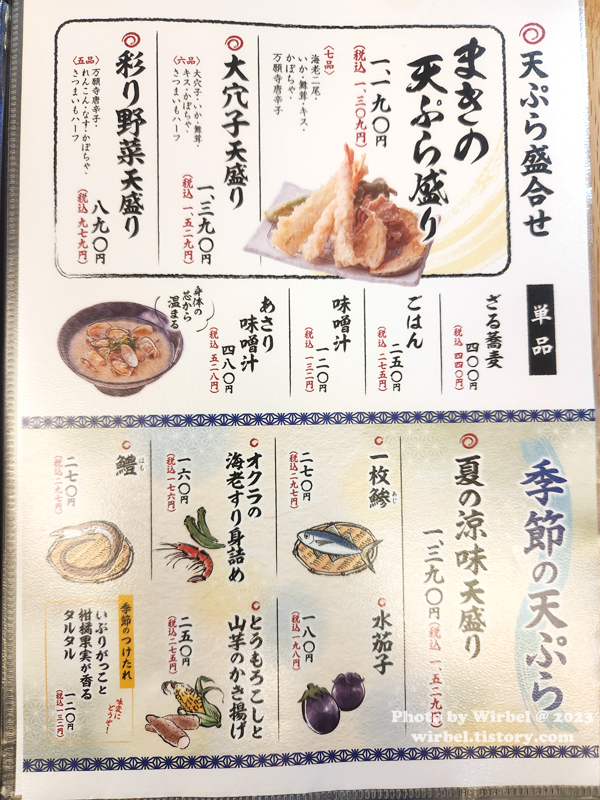 天ぷら盛合せ
まきの
天ぷら盛り
一、一九〇円
(税込 一、三〇九円)
〈七品〉
海老二尾・
いか・舞茸・キス・
かぼちゃ・
万願寺唐辛子
大穴子天盛り
一、三九〇円
(税込 一、五二九円)
〈六品〉
大穴子・いか・舞茸・
キス・かぼちゃ・
さつまいもハーフ
彩り野菜天盛り
八九〇円
(税込 九七九円)
〈五品〉
万願寺唐辛子
れんこん・なす・かぼちゃ・
さつまいもハーフ
単品
ざる蕎麦
四〇〇円
(税込 四四〇円)
ごはん
二五〇円
(税込 二七五円)
味噌汁
一二〇円
(税込 一三二円)
あさり
味噌汁
四八〇円
(税込 五二八円)
身体の
芯から
温まる
季節の天ぷら
夏の涼味天盛り
一、三九〇円(税込 一、五二九円)
一枚鯵
あじ
二七〇円
(税込 二九七円)
オクラの
海老すり身詰め
一六〇円
(税込 一七六円)
鱧
はも
二七〇円
(税込 二九七円)
水茄子
一八〇円
(税込 一九八円)
とうもろこしと
山芋のかき揚げ
二五〇円
(税込 二七五円)
季節のつけたれ
いぶりがっこと
柑橘果実が香る
タルタル
一二〇円
(税込 一三二円)
味変に
どうぞ!
Photo by Wirbel @ 2023
wirbel.tistory.com